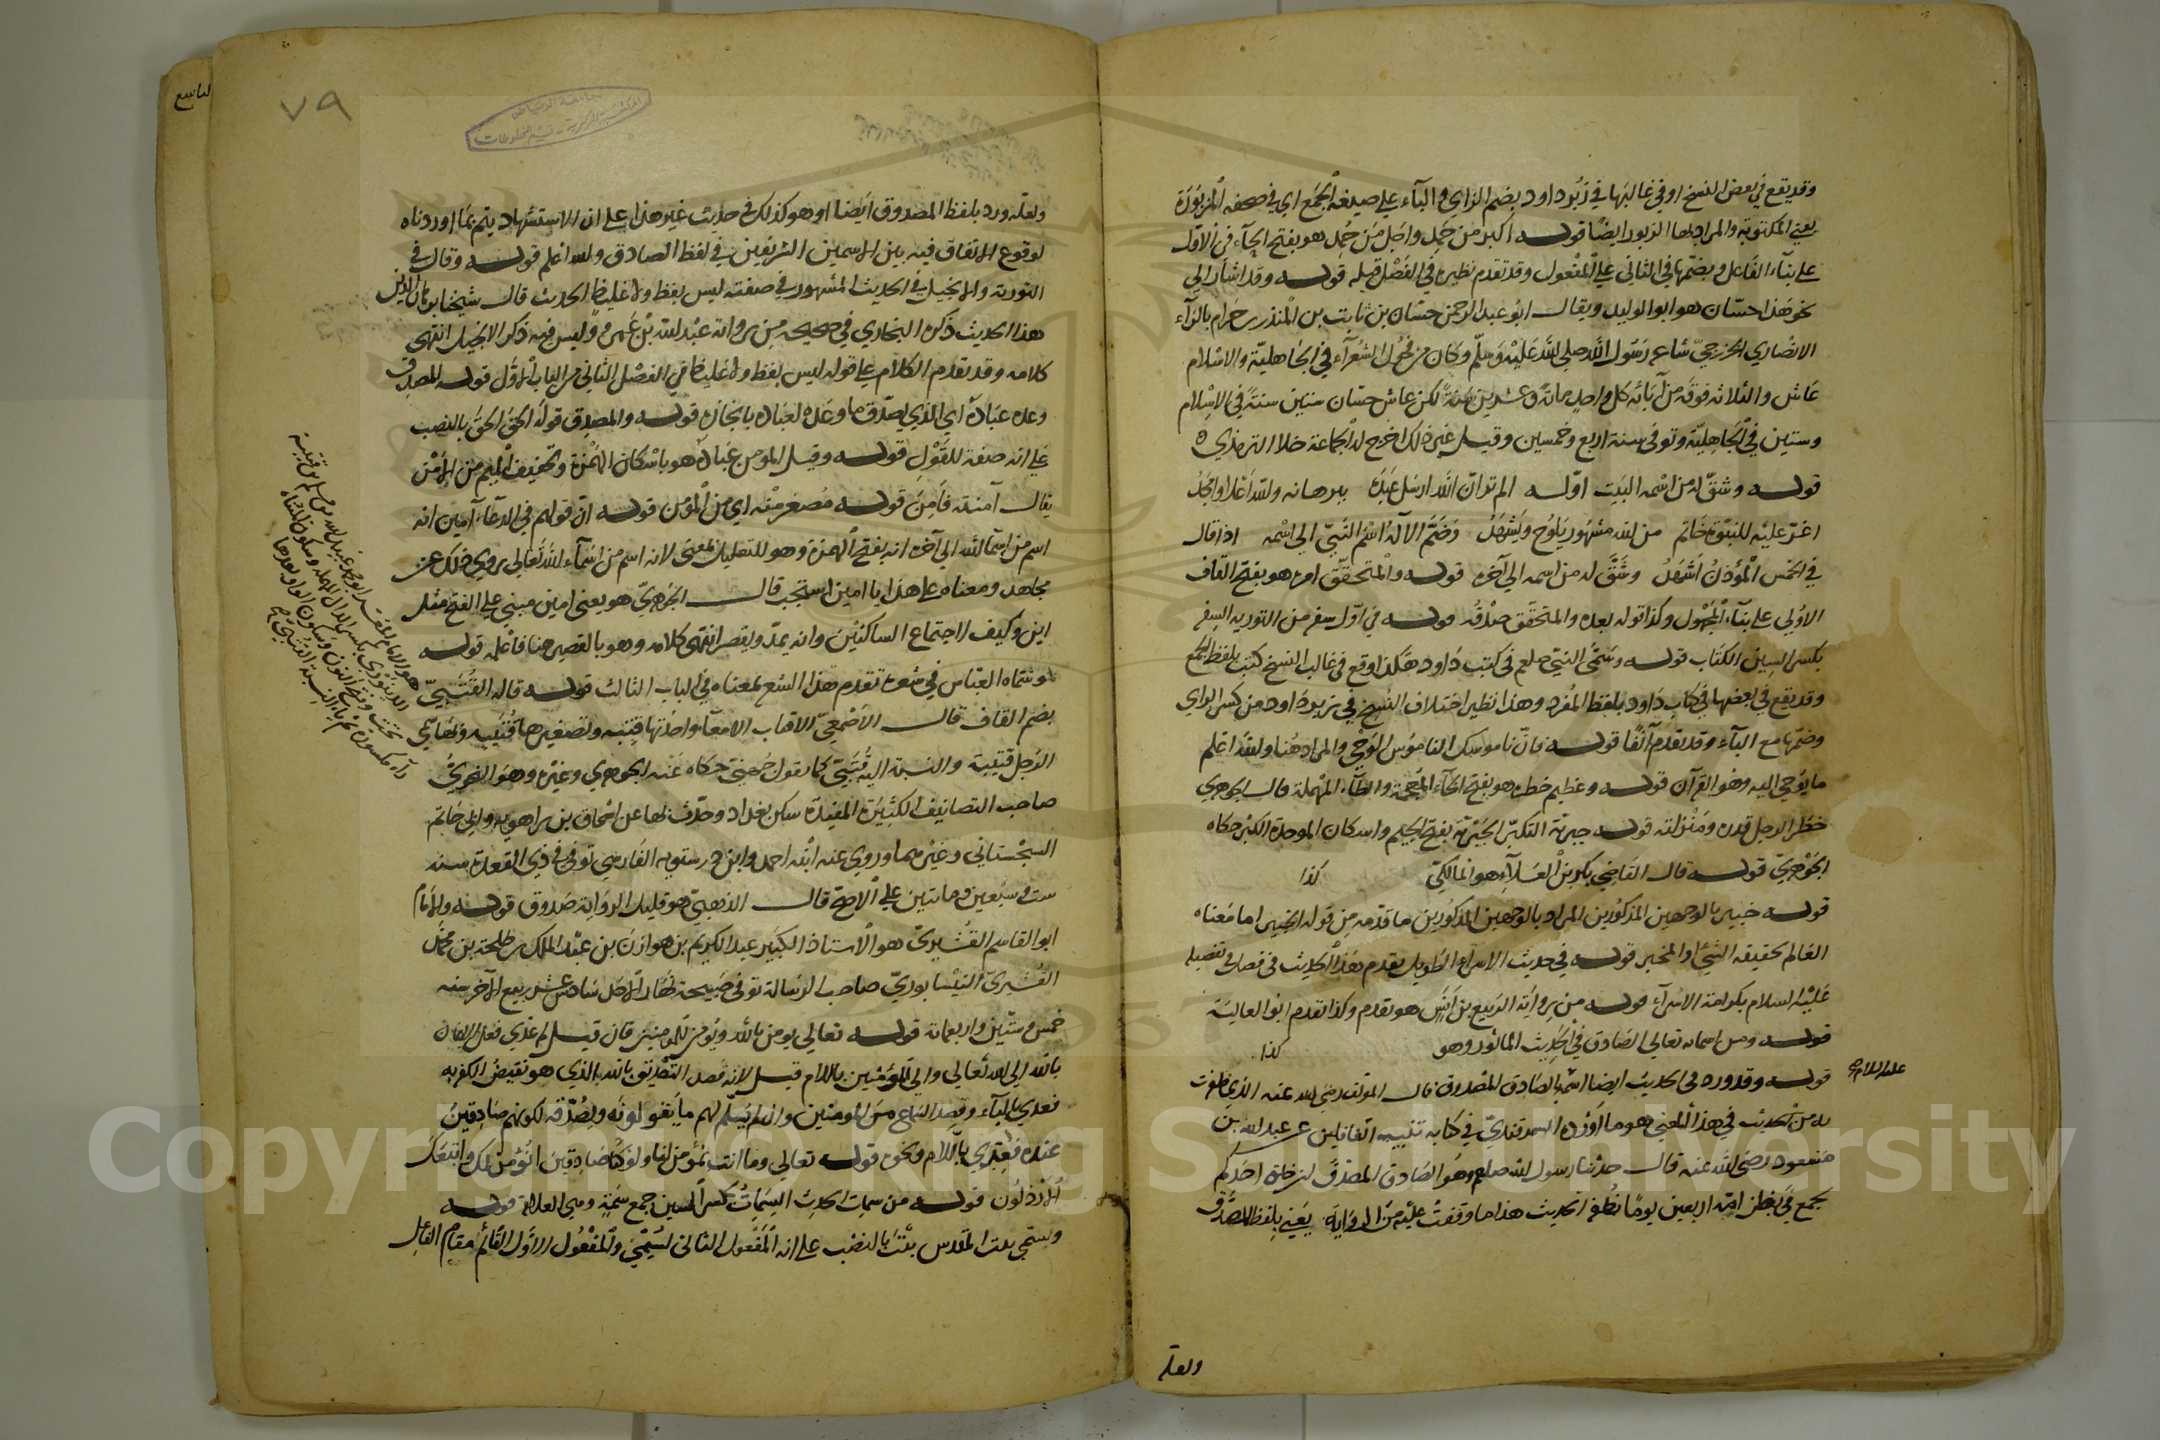 وقد يقع في بعض النسخ او في غالبها في زبُر داود بضم الزاي والباء على صيغة الجمع اي في صحفه المزبورة
يعني المكتوبة والمراد بها الزبور ايضا قوله اكبر من حَمِد واجل من حُمِد هو بفتح الحاء في الاول
على بناء الفاعل وبضمها في الثاني على المفعول وقد تقدم نظيره في الفصل قبله قوله وقد اشار الي
نحو هذا حسّان هو ابو الوليد ويقال ابو عبد الرحمن حسّان بن ثابت بن المنذر بن حرام بالراء
الانصاري الخزرجيّ شاعر رسول الله صلى الله عليه وسلم وكان من فحول الشعراء في الجاهلية والاسلام
عاش والثلاثة فوقه من آبائه كل واحد مائة وعشرين سنة لكن عاش حسان ستين سنة في الاسلام
وستين في الجاهلية وتوفي سنة اربع وخمسين وقيل غير ذلك اخرج له الجماعة خلا الترمذي
قوله وشقّ له من اسمه البيت اوله الم تر انّ الله ارسل عبدَهُ ببرهانه والله اعلا وامجدُ
اغرّ عليه للنبّوة خاتم من الله مشهور يلوح ويشهدُ وضَمّ الاله اسم النبيّ الي اسمه اذا قال
في الخمس المؤذن اشهدُ وشَقَّ له من اسمه الي آخره قوله والمتحقَّق امره هو بفتح القاف
الاولي على بناء المجهول وكذا قوله بعده والمتحقق صدقُه قوله في اوّل سفر من التوريه السِفر
بكسر السين الكتاب قوله وسمّى النبيّ صلعم في كتب داود هكذا وقع في غالب النسخ كتب بلفظ الجمع
وقد يقع في بعضها في كتاب داود بلفظ المفرد وهذا نظير اختلاف النسخ في زبور داود من كسر الزاي
وضمّها مع الباء وقد تقدم آنفًا قوله فانّ ناموسك الناموس الوحي والمراد هُنا والله اعلم
ما يُوحي اليه وهو القرآن قوله وعظيم خطره هو بفتح الخاء المعجمة والطاء المهملة قال الجوهري
خطر الرجل قدره ومنزلته قوله جبريّة التكبّر الجبريّة بفتح الجيم واسكان الموحدة الكبر حكاه
الجوهريّ قوله قال القاضي بكر بن العلاء هو المالكيّ كذا
قوله خبير بالوجهين المذكورين المراد بالوجهين المذكورين ما قدّمه من قوله الخبير اما معناه
العالم بحقيقة الشيء او المخبر قوله في حديث الاسراء الطويل تقدم هذا الحديث في فصل في تفضيله
عليه السلام بكرامة الاسراء قوله من رواية الربيع بن انس هو تقدم وكذا تقدم ابو العالية
قوله ومن اسمائه تعالى الصادق في الحديث الماثور وهو كذا
قوله وقد ورد في الحديث ايضا اسمُه الصادق المصدوق قال المؤلف رضي الله عنه الذي ظفرت
عليه السلام
به من الحديث في هذا المعني هو ما اورده السمرقنديّ في كتابه تنبيه الغافلين عن عبد الله بن
مسعود رضي الله عنه قال حدثنا رسول الله صلعم وهو الصادق المصدق ان خلق احدكم
يجمع في بطن امّه اربعين يومًا نُطفة الحديث هذا ما وقفت عليه من الرواية يعني بلفظ المصدّق
ولعله
٧٩
ولعله ورد بلفظ المصدوق ايضا او هو كذلك في حديث غير هذا على ان الاستشهاد يتم بما اوردناه
لوقوع الاتفاق فيه بين الاسمين الشريفين في لفظ الصادق والله اعلم قوله وقال في
التورية والانجيل في الحديث المشهور في صفته ليس بفظ ولا غليظ الحديث قال شيخنا برهان الدين
هذا الحديث ذكره البخاري في صحيحه من رواية عبد الله بن عمرو وليس فيه ذكر الانجيل انتهى
كلامه وقد تقدم الكلام على قوله ليس بفظ ولا غليظ في الفصل الثاني من الباب الاوّل قوله المصدق
وعده عبادَه اي الذي يصدّق ما وعده لعباده بانجازه قوله والمصدق قوله الحق الحقَّ بالنصب
على انه صفة للقول قوله وقيل المومن عبادَه هو باسكان الهمزة وتخفيف الميم من الامن
يقال آمنته فأمِنَ قوله مُصغر منه اي من المؤمن قوله انّ قولهم في الدعاء آمين انه
اسم من اسما الله الي آخره انه بفتح الهمزة وهو للتعليل لمعنى لانه اسم من اسماء الله تعالى روي ذلك عن
مجاهد ومعناه على هذا يا امين استجب قال الجوهريّ هو يعني امين مبني على الفتح مثل
اين وكيف لاجتماع الساكنين وانه يمدّ ويقصر انتهى كلامه وهو بالقصر هنا فاعلمه قوله
وسماه العباس في شعره تقدم هذا الشعر بمعناه في الباب الثالث قوله قاله القُتَبِيّ
بضم القاف قال الاصمعيّ الاقتاب الامعاء واحدتها قِتبه وتصغيرها قُتَيبه وبها سمّي
الرجل قتيبة والنسبة اليه قُتَبيّ كما يقول جُهنيّ حكاه عنه الجوهري وغيره وهو النحويّ
صاحب التصانيف الكثيرة المفيدة سكن بغداد وحدّث بها عن اسحاق بن راهويه وابي حاتم
السجستاني وغيرهما وروي عنه ابنه احمد وابن درستويه الفارسي توفي في ذي القعدة سنة
ست وسبعين ومائتين على الاصحّ قال الذهبيّ هو قليل الرواية صدوق قوله والامام
ابو القاسم القُشيريّ هو الاستاذ الكبير عبد الكريم بن هوازن بن عبد الملك بن طلحة بن محمد
القُشيريّ النيسابوريّ صاحب الرسالة توفي صبيحة نهار الاحد سادس عشر ربيع الآخر سنة
خمس وستين واربعمائة قوله تعالي يومن بالله ويُومن للمومنين فان قيل لم عُدّي فعل الايمان
بالله الى الله تعالى والى المؤمنين باللام قيل لانه قصد التصديق بالله الذي هو نقيض الكفر به
فعدي بالباء وقصد السماع من المومنين وان يسلّم لهم ما يقولونه ويُصدّقه لكونهم صادقين
عنده فعُدّي باللام ونحوه قوله تعالى وما انت بمُؤمن لنا ولو كُنّا صادقين انُؤمن لك واتبعك
الارذلون قوله من سمات الحديث السِمات بكسر السين جمع سمة وهي العلامة قوله
وسُمّي بيت المقدس بيْتَ بالنصب على انه المفعول الثاني لسُمّي والمفعول الاوّل القائم مقام الفاعل
هو الامام العلامة ابو محمد عبد الله بن مسلم بن قتيبة
الدينوري بكسر الدال المهملة وسكون المثناة
تحت وفتح النون وسكون الواو بعدها
راء مكسورة ثم ياء النسبة القتبيّ
Copyright © King Saud University